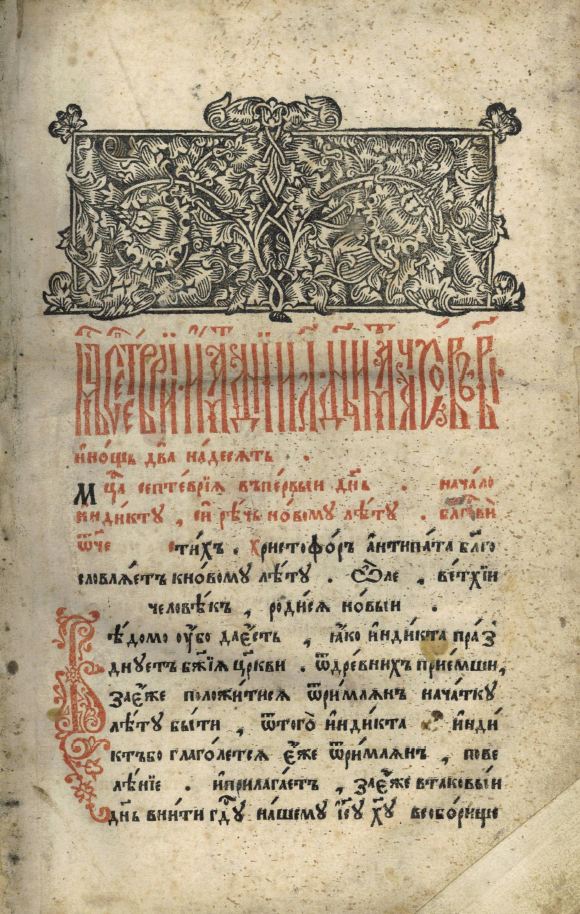 МЦ҃Ъ СЕПТЕВРЇИ ИМАТЬ ДНЇИ Л҃ ДН҃Ь ИМАТЬ ЧАСОВЪ
и҆но́щь два̀ на́десѧть . .
Мцⷭ҇а септе́врїѧ въпе́рвыи дн҃ь . нача́ло
и҆нди́кту , си́ рѣ́чь но́вому лѣ́ту . блгⷭ҇ви́
ѿ́че сти́хъ . Христофо́ръ а҆нтипа́та бл҃го
словлѧ́етъ кно́вому лѣ́ту . Ѽле , ве́тхїи
человѣ́къ , роди́сѧ но́выи .
Вѣ́домо ѹ҆́бо да є҆́сть , ꙗ҆́ко и҆нди́кта пра́з
днуетъ бж҃їѧ цр҃кви . ѿдре́внихъ прїе́мши ,
зане́же положи́тисѧ ѿри́млѧнъ нача́тку
лѣ́ту бы́ти , ѿтого̀ и҆нди́кта . и҆нди́
ктъбо глаго́летсѧ є҆́же ѿри́млѧнъ , пове
лѣ́нїе . и҆прилага́етъ , зане́же втаковы́и
дн҃ь вни́ти гдⷭ҇у на́шему і҆с҃у х҃у всобо́рище